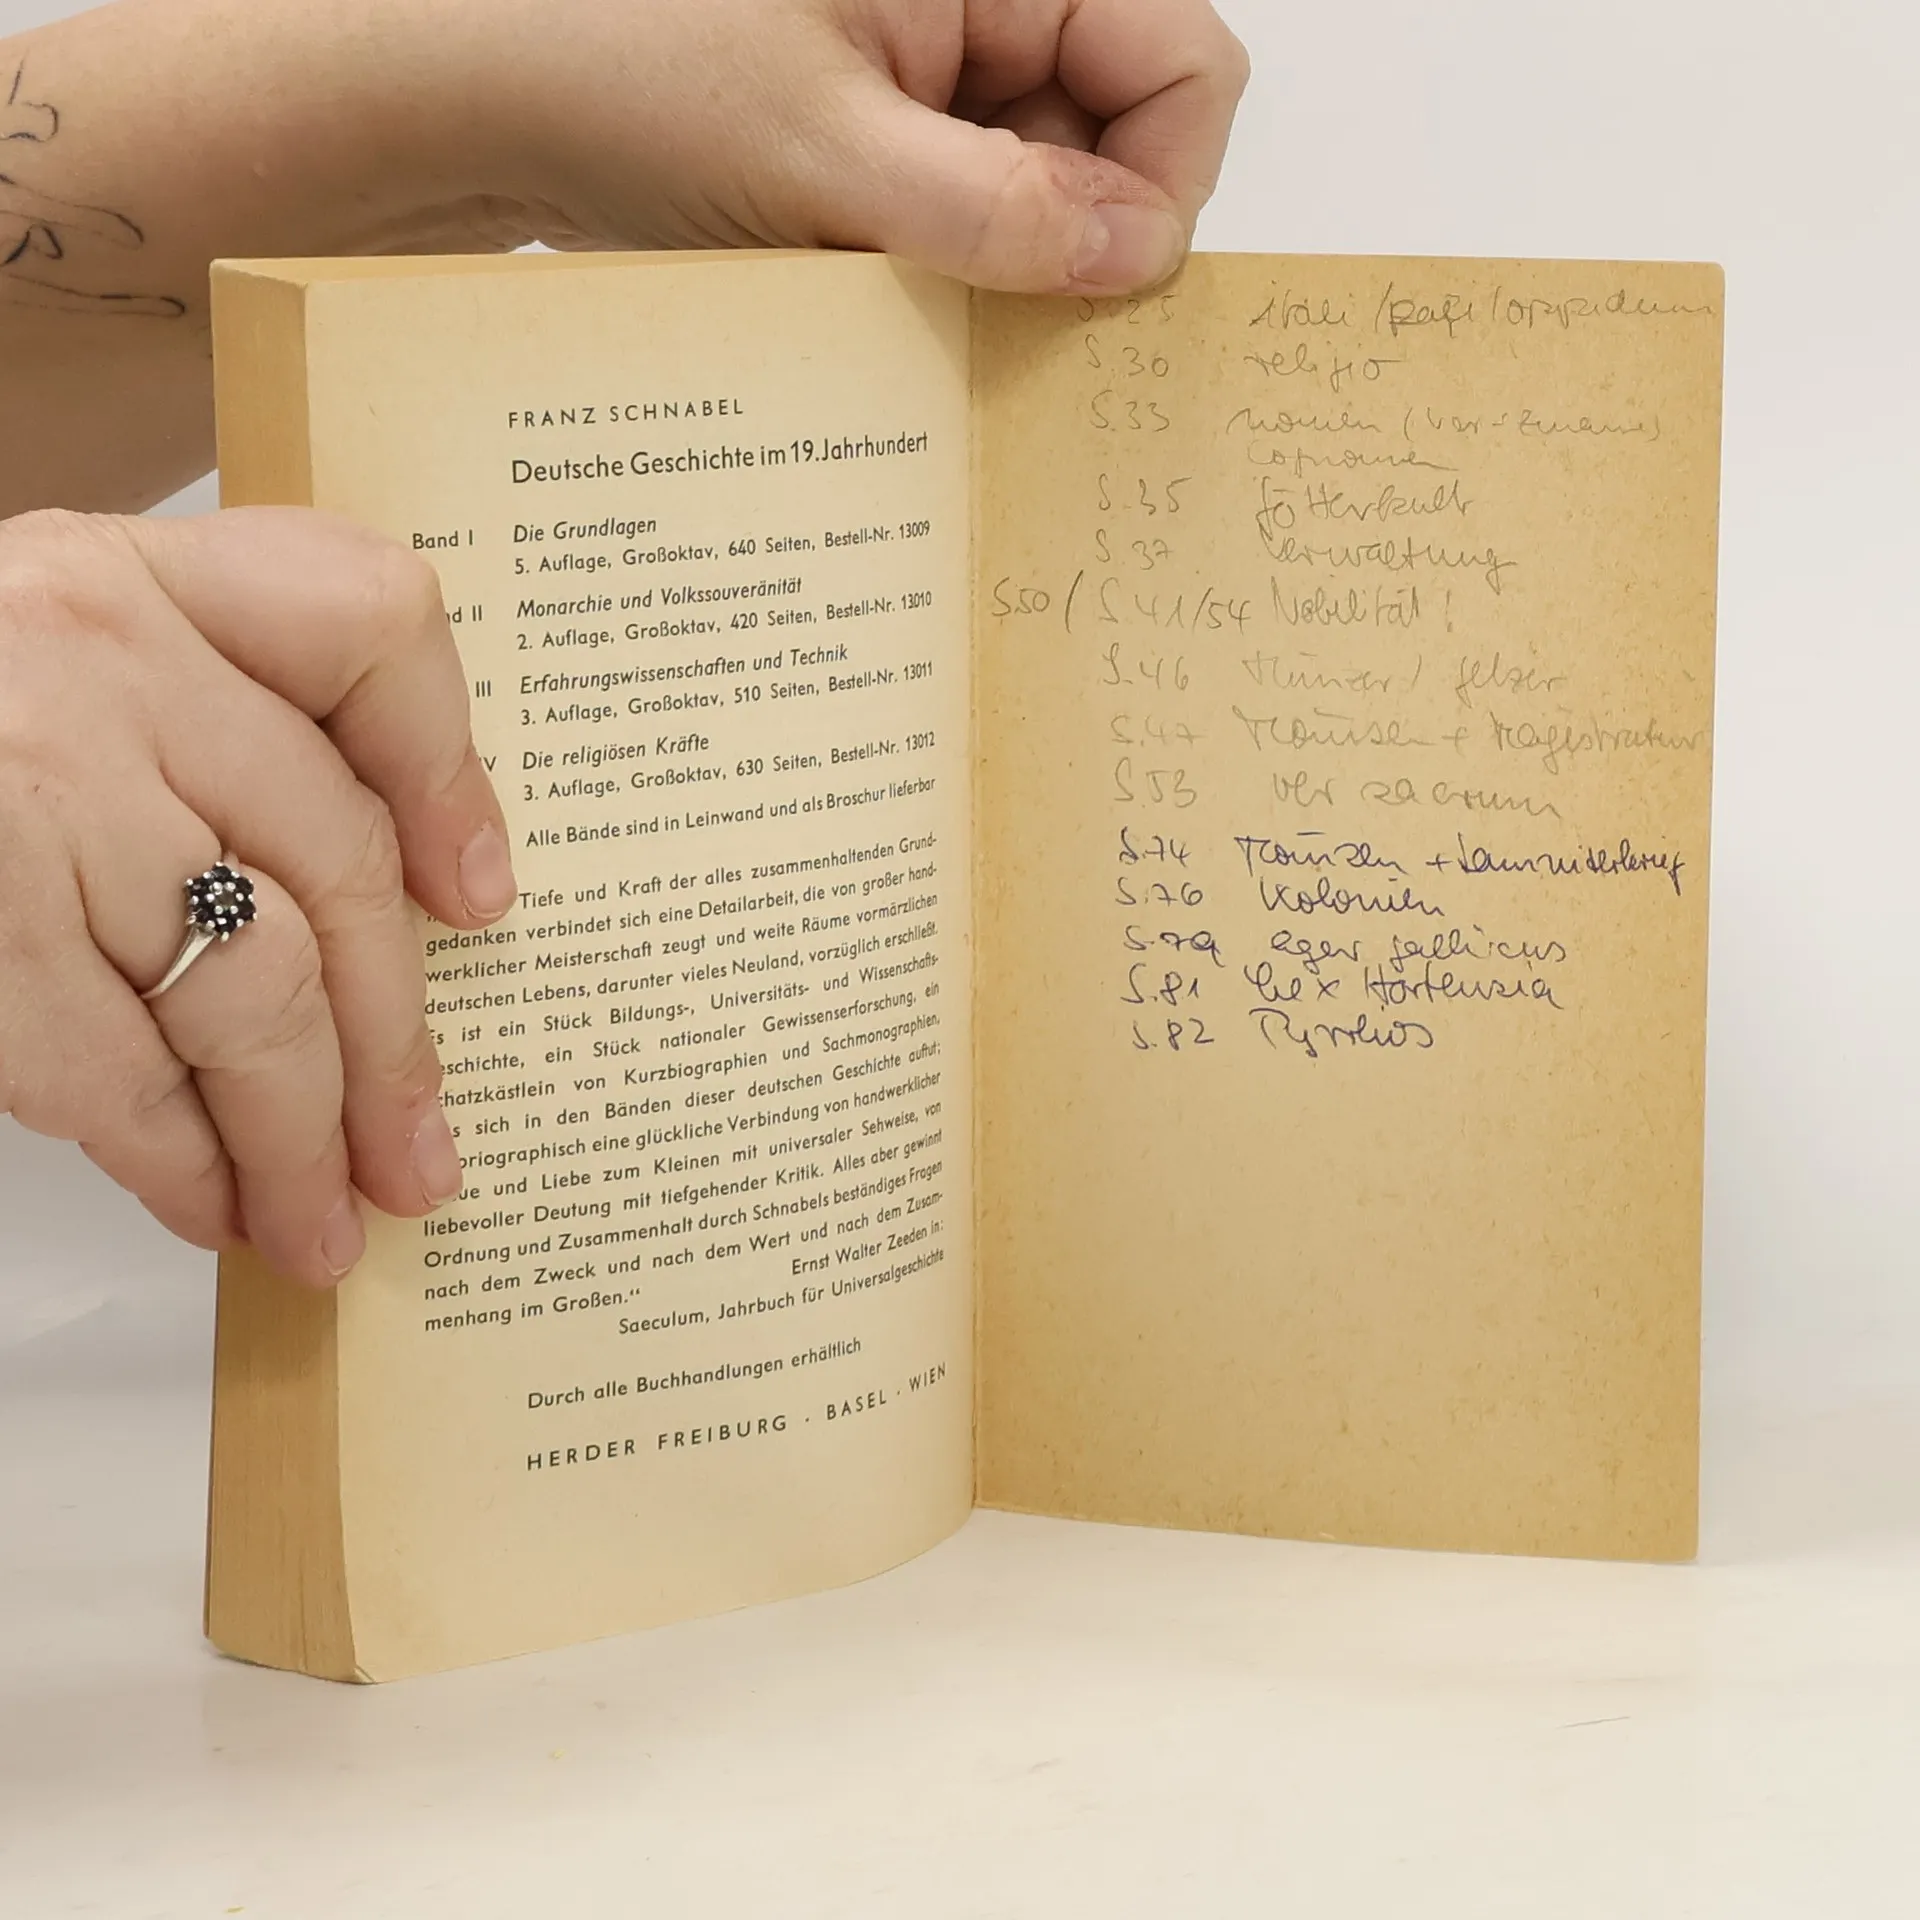 FRANZ SCHNABEL
Deutsche Geschichte im 19. Jahrhundert
Band I Die Grundlagen
5. Auflage, Großoktav, 640 Seiten, Bestell-Nr. 13009
nd II Monarchie und Volkssouveränität
2. Auflage, Großoktav, 420 Seiten, Bestell-Nr. 13010
III Erfahrungswissenschaften und Technik
3. Auflage, Großoktav, 510 Seiten, Bestell-Nr. 13011
IV Die religiösen Kräfte
3. Auflage, Großoktav, 630 Seiten, Bestell-Nr. 13012
Alle Bände sind in Leinwand und als Broschur lieferbar
Tiefe und Kraft der alles zusammenhaltenden Grund-
gedanken verbindet sich eine Detailarbeit, die von großer hand-
werklicher Meisterschaft zeugt und weite Räume vormärzlichen
deutschen Lebens, darunter vieles Neuland, vorzüglich erschließt.
Es ist ein Stück Bildungs-, Universitäts- und Wissenschafts-
eschichte, ein Stück nationaler Gewissenserforschung, ein
chatzkästlein von Kurzbiographien und Sachmonographien,
s sich in den Bänden dieser deutschen Geschichte auftut;
oriographisch eine glückliche Verbindung von handwerklicher
ue und Liebe zum Kleinen mit universaler Sehweise, von
liebevoller Deutung mit tiefgehender Kritik. Alles aber gewinnt
Ordnung und Zusammenhalt durch Schnabels beständiges Fragen
nach dem Zweck und nach dem Wert und nach dem Zusam-
menhang im Großen.“
Ernst Walter Zeeden in:
Saeculum, Jahrbuch für Universalgeschichte
Durch alle Buchhandlungen erhältlich
HERDER FREIBURG · BASEL · WIEN
S. 25 itali / pagi / oppidum
S. 30 religio
S. 33 nomen (Vor-
Cognomen
S. 35 Götterkult
S. 37 Verwaltung
S. 50 / S. 41/54 Nobilität!
S. 46
S. 47 + Magistratur
S. 53 ver sacrum
S. 74 + Samniterkrieg
S. 76 Kolonien
S. 79 ager gallicus
S. 81 Lex Hortensia
S. 82 Pyrrhos